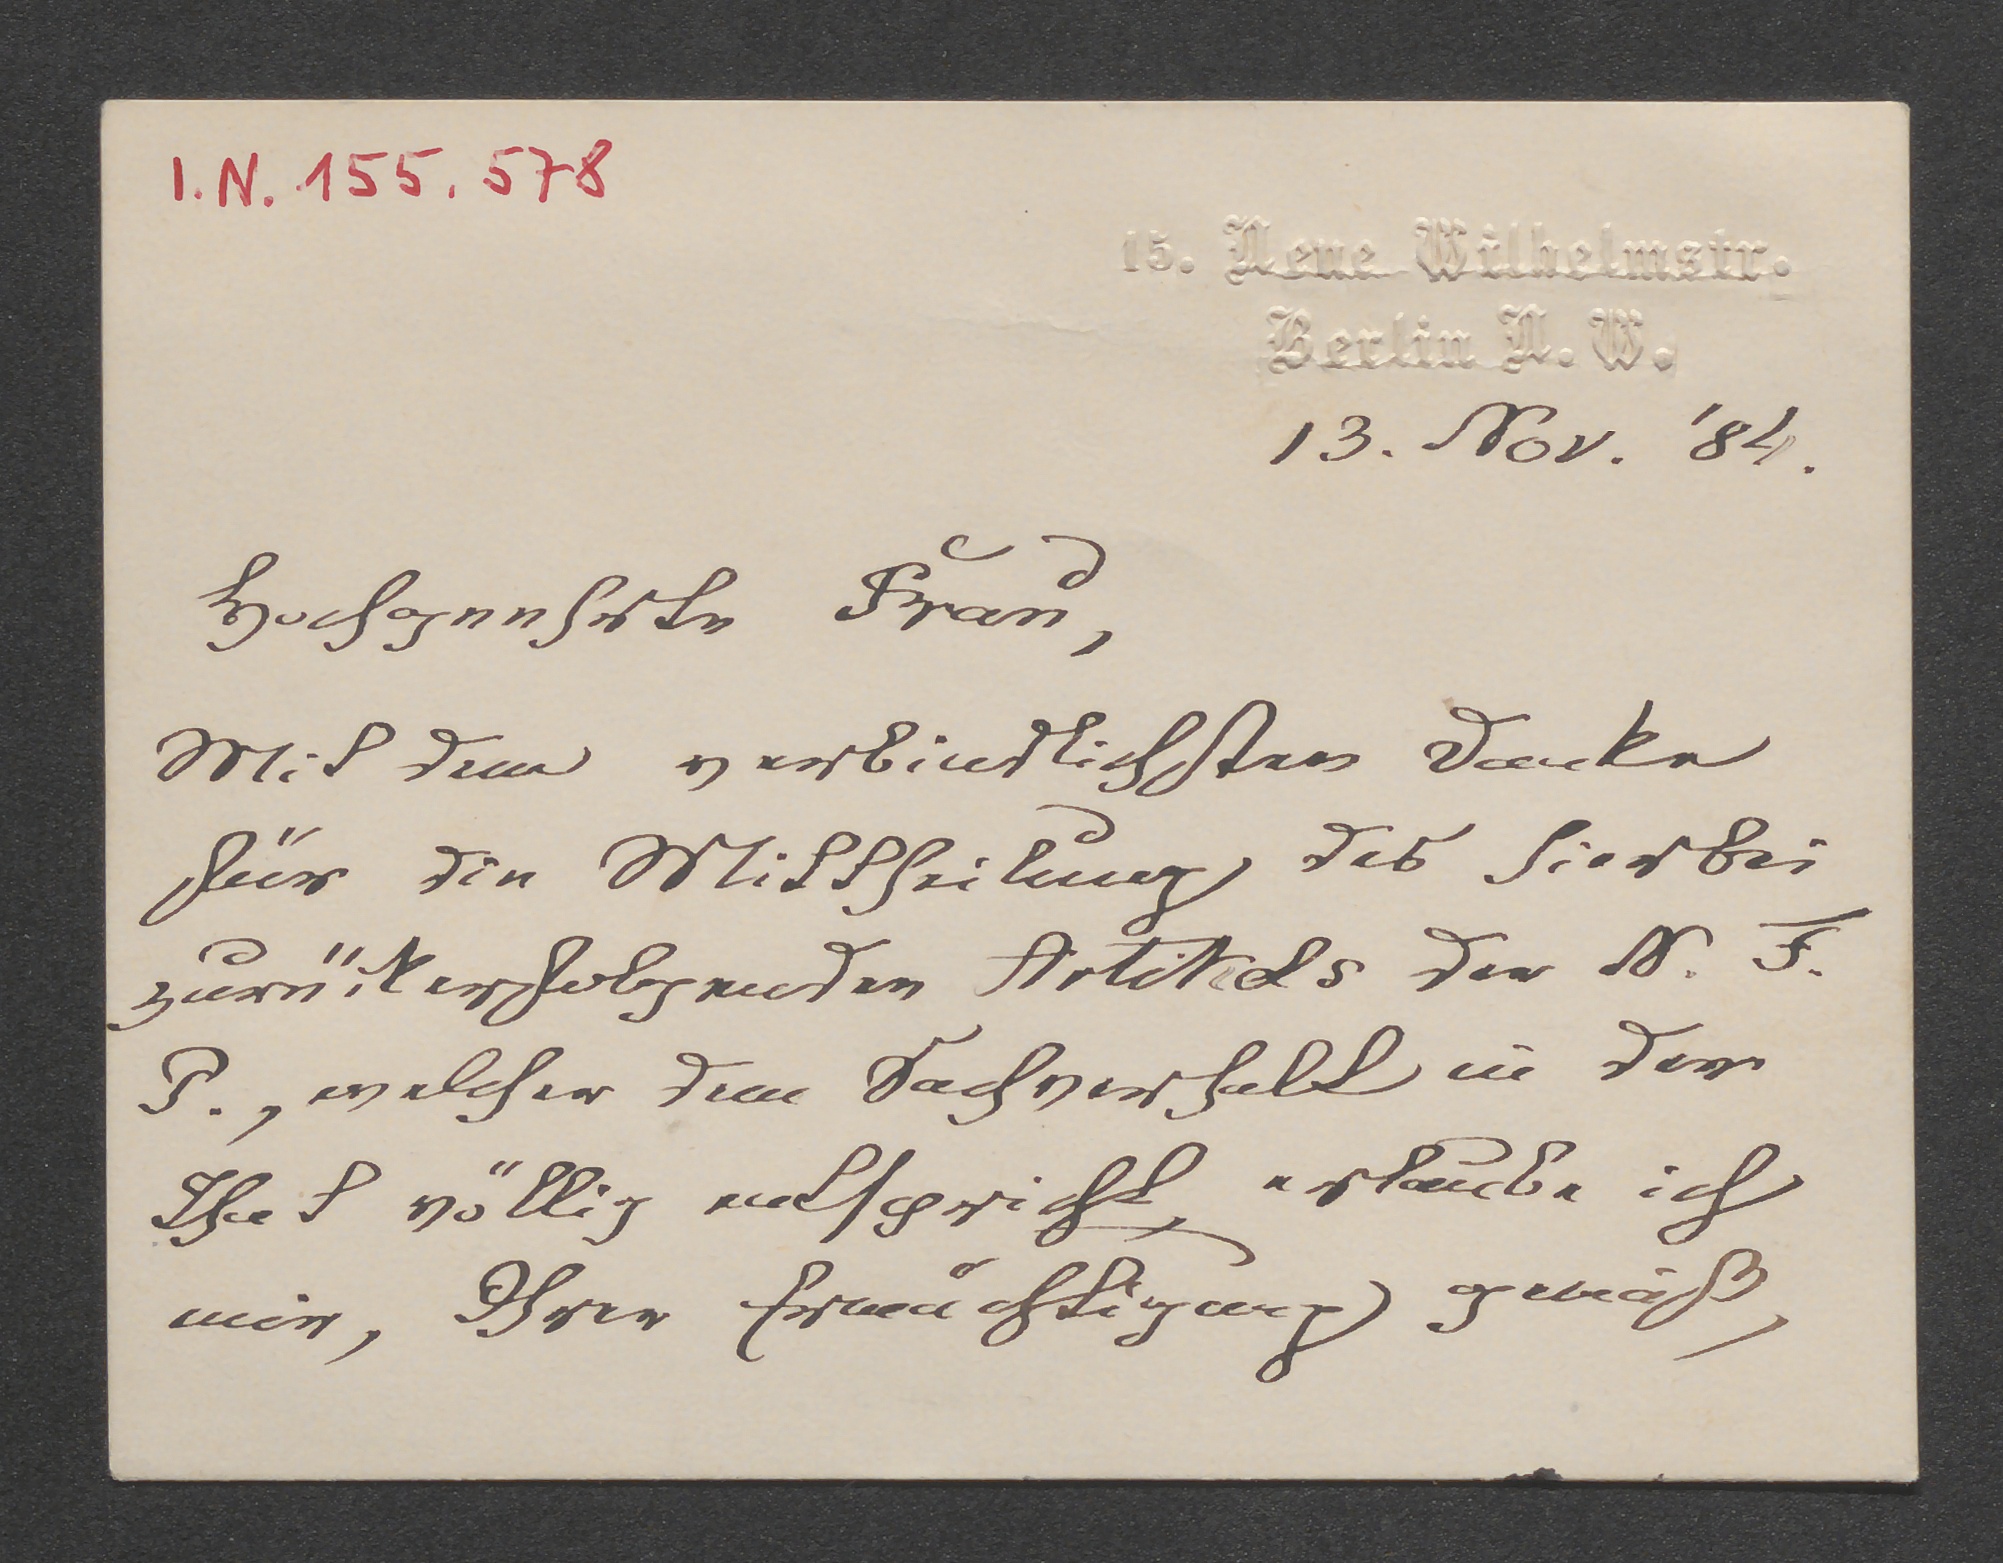 I.N. 155.578
15. Neue Wilhelmstr.
Berlin N. W.
13. Nov. '84.
Hochgeehrte Frau,
Mit dem verbindlichsten Danke
für die Mittheilung des hierbei
zurükerfolgenden Artikels der N. F.
P., welcher dem Sachverhalt in der
That völlig entspricht, erlaube ich
mir, Ihrer Ermächtigung gemäß,